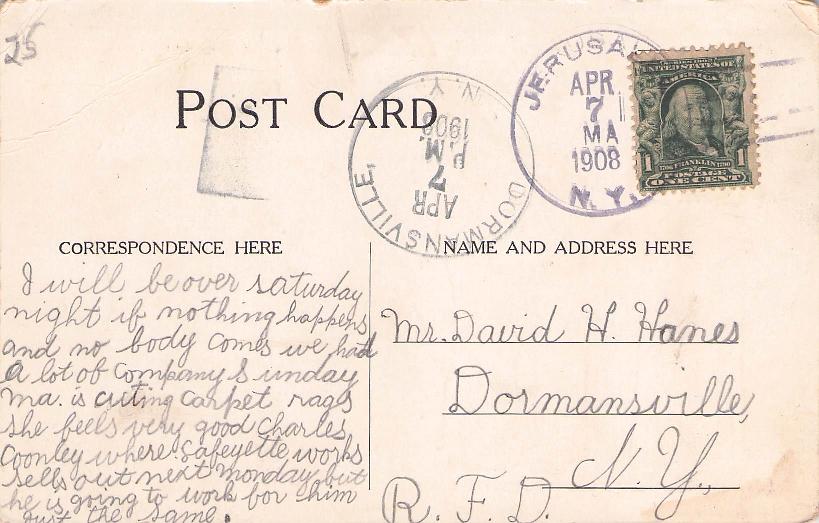 25
POST CARD
DORMANSVILLE,
APR
7
P.M.
1908
N.Y.
JERUSAL
APR
7
MA
1908
N.Y.
SERIES 1902
UNITED STATES OF
AMERICA
1706 FRANKLIN 1790
1 POSTAGE 1
ONE CENT
CORRESPONDENCE HERE
I will be over saturday
night if nothing happens
and no body comes we had
a lot of company Sunday
Ma. is cuting carpet rags
she feels very good Charles
Coonley where Lafeyette works
sells out next Monday but
he is going to work for him
just the same.
NAME AND ADDRESS HERE
Mr. David H. Hanes
Dormansville,
N.Y.,
R. F. D.